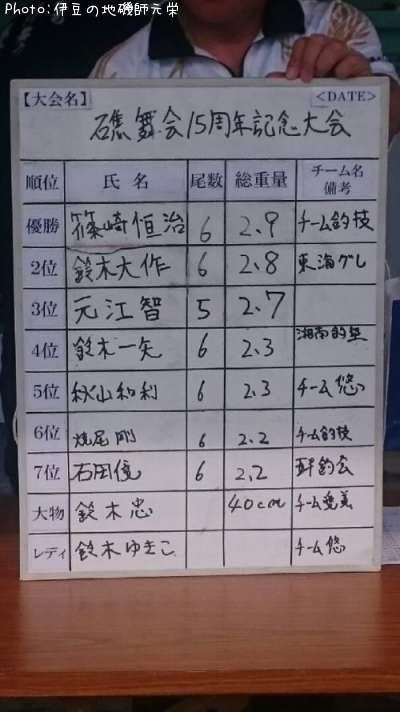 Photo:伊豆の地磯師元栄
【大会名】 <DATE>
礁舞会15周年記念大会
順位 氏名 尾数 総重量 チーム名 備考
優勝 篠崎恒治 6 2.9 チーム釣技
2位 鈴木大作 6 2.8 東海グレ
3位 元江智 5 2.7
4位 鈴木一矢 6 2.3 湘南釣塾
5位 秋山和利 6 2.3 チーム悠
6位 焼尾剛 6 2.2 チーム釣技
7位 石田 6 2.2 釣会
大物 鈴木忠 40cm チーム
レディ 鈴木ゆきこ チーム悠